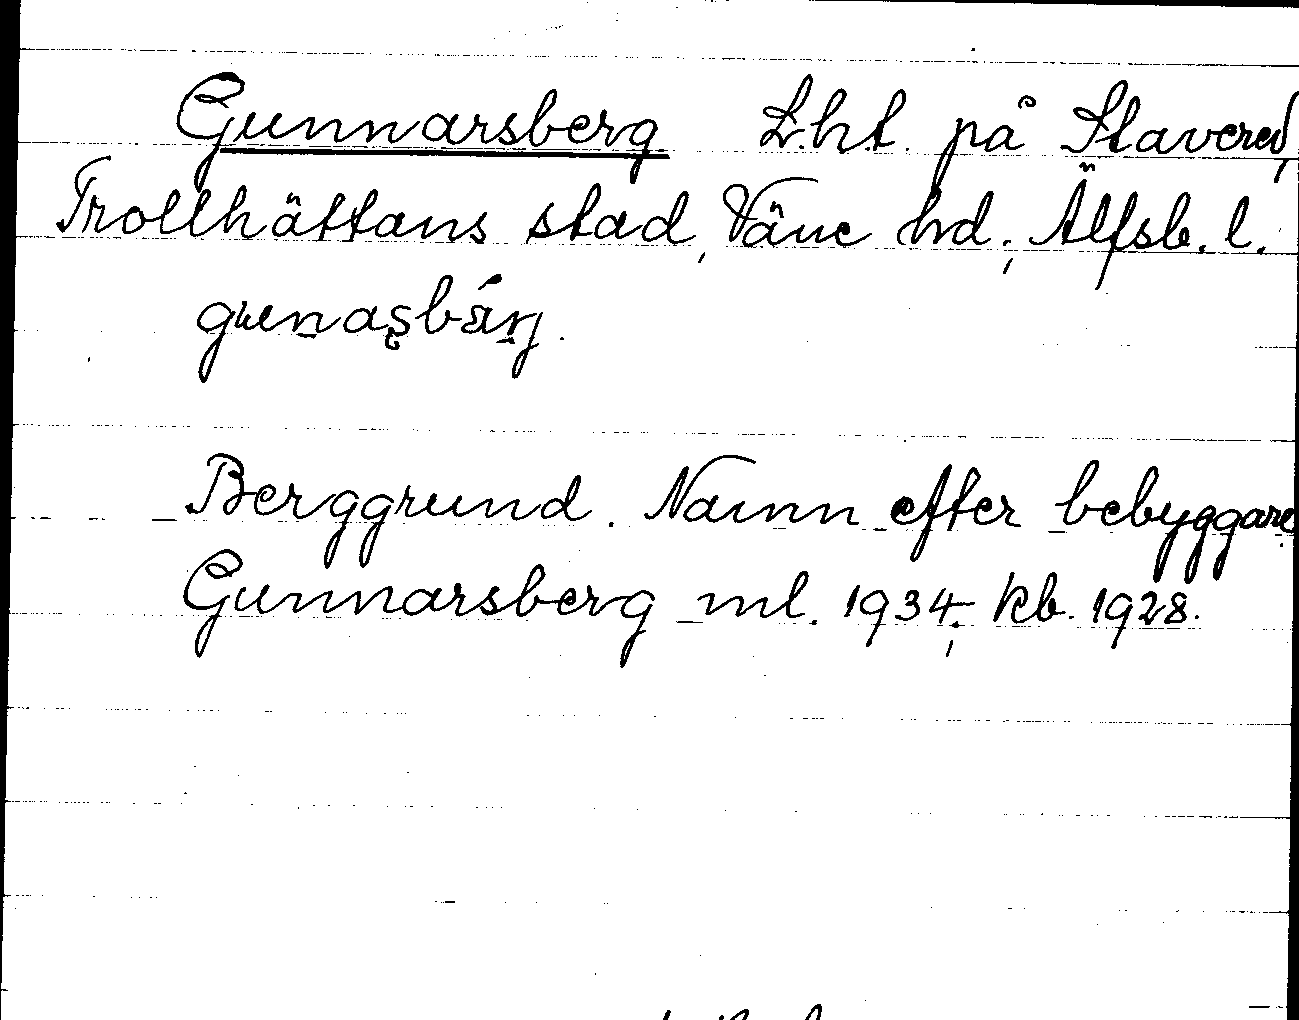 Gunnarsberg L.ht. på Stavered,
Trollhättans stad, Väne hd; Älfsb. l.
Berggrund. Namn efter bebyggare
Gunnarsberg ml. 1934; kb. 1928.